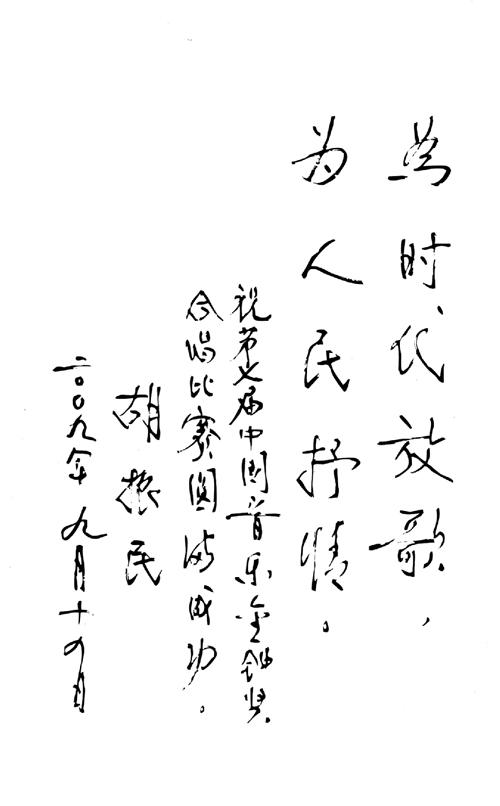 为时代放歌，
为人民抒情。
祝第七届中国音乐金钟奖
合唱比赛圆满成功。
胡振民
二〇〇九年九月十四日